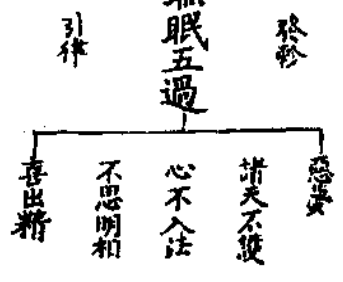 眠五過
惡夢
諸天不護
心不入法
不思明相
喜出精